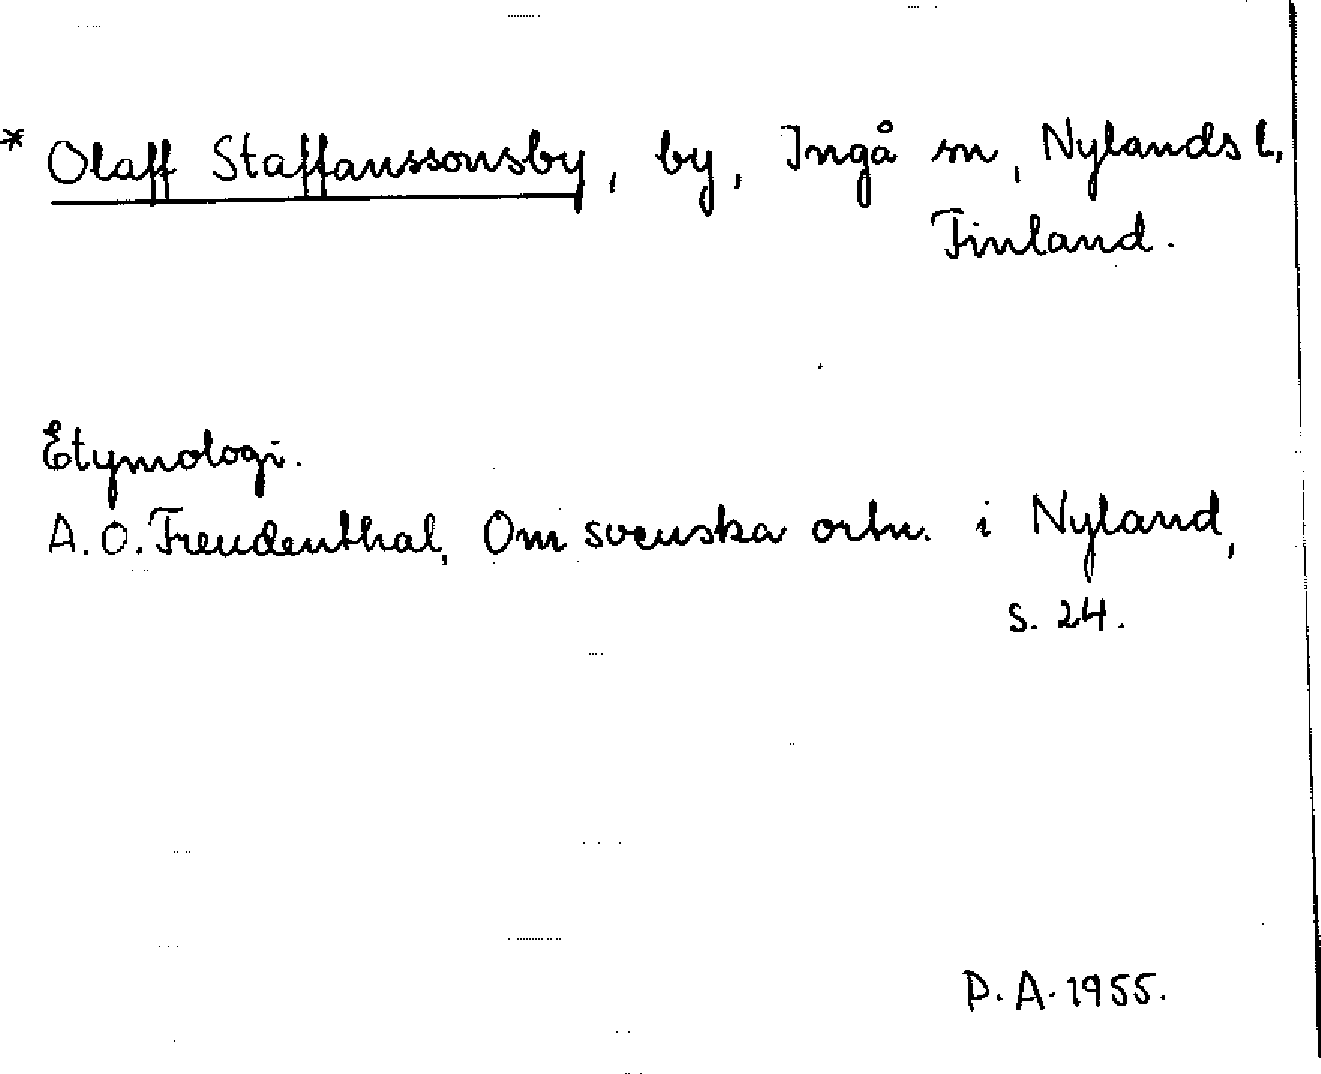 * Olaff Staffanssonsby, by, Ingå sn, Nylands l,
Finland.
Etymologi.
A. O. Freudenthal, Om svenska ortn. i Nyland,
s. 24.
P. A. 1955.